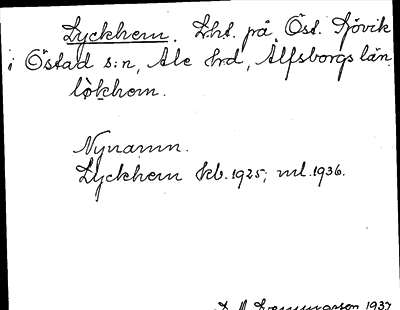 Lyckhem. Lht. på Öst. Sjövik
i Östad s:n, Ale hrd, Älfsborgs län.
lỳkhem.
Nynamn.
Lyckhem kb. 1925; ml. 1936.
1937